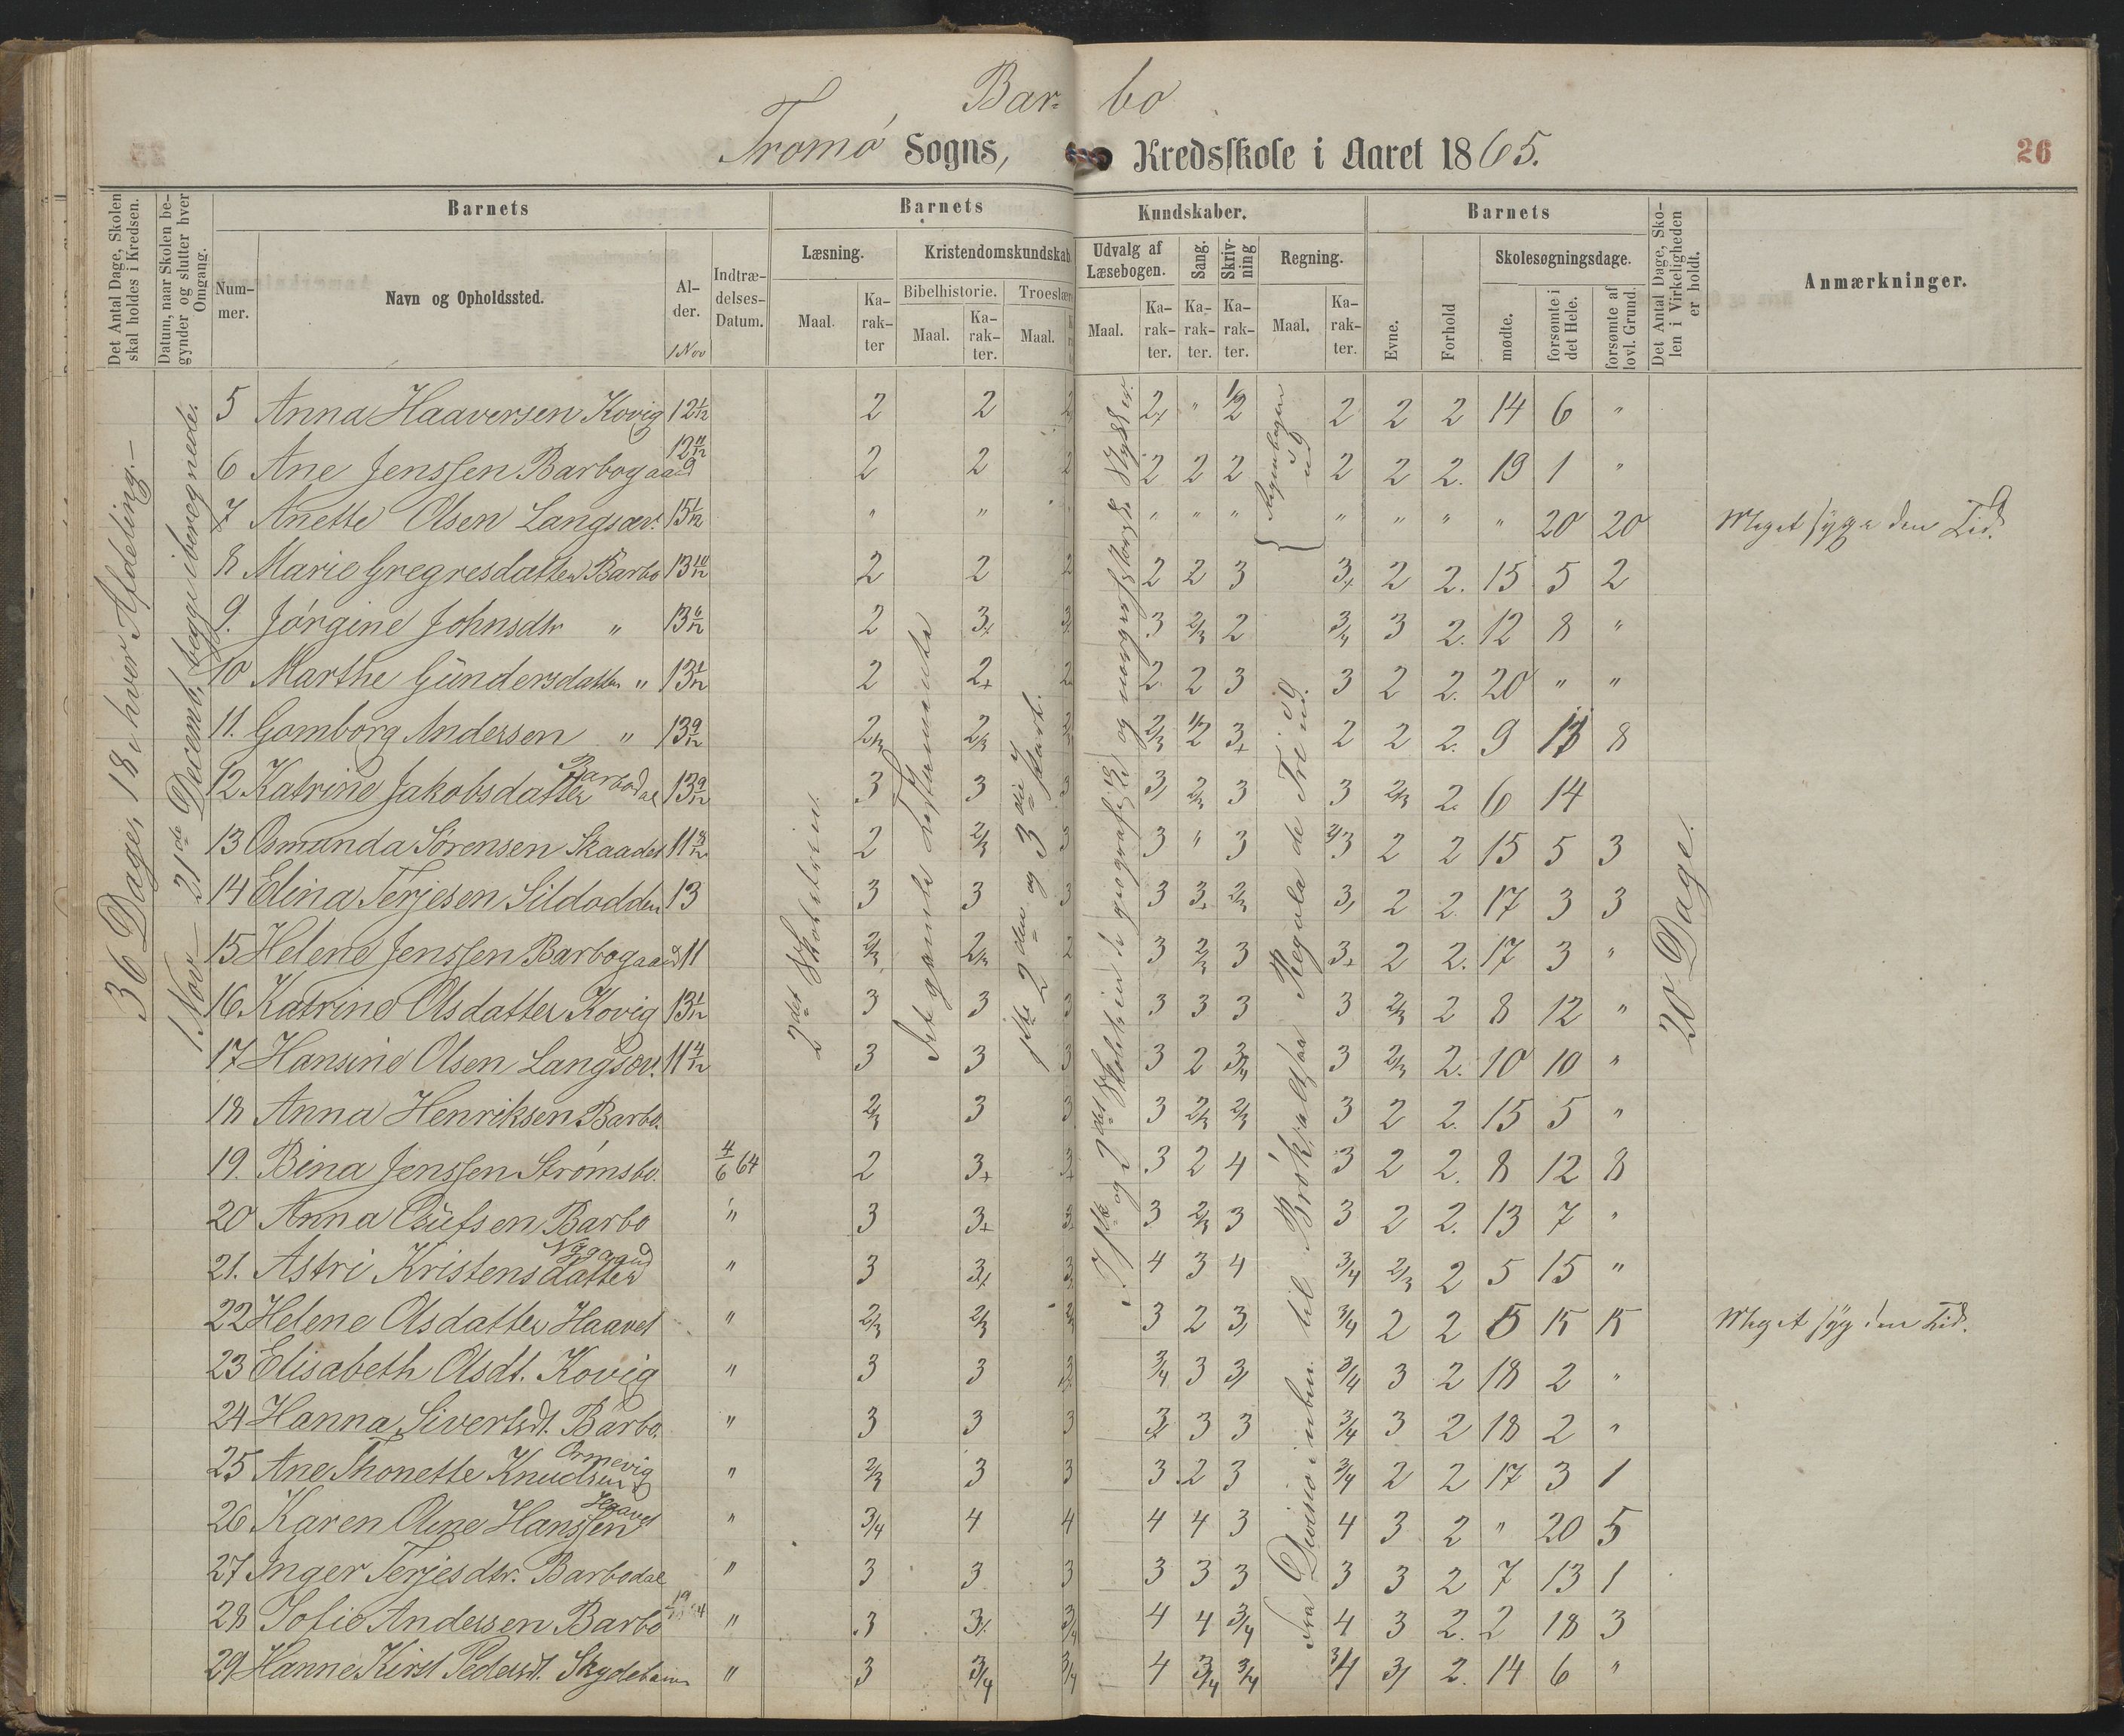 Bar- bo
Tromø Sogns, Kredsskole i Aaret 1865.
26
Det Antal Dage, Skolen skal holdes i Kredsen.
Datum, naar Skolen begynder og slutter hver Omgang.
Barnets
Nummer.
Navn og Opholdssted.
Alder.
1 Nov
Indtrædelses-Datum.
Barnets Kundskaber.
Læsning.
Maal.
Karakter
Kristendomskundskab
Bibelhistorie.
Maal.
Karakter.
Troeslær
Maal.
Udvalg af Læsebogen.
Maal.
Karakter.
Sang.
Karakter.
Skrivning
Karakter.
Regning.
Maal.
Karakter.
Barnets
Evne.
Forhold
Skolesøgningsdage.
mødte.
forsømte i det Hele.
forsømte af lovl. Grund.
Det Antal Dage, Skolen i Virkeligheden er holdt.
Anmærkninger.
36 Dage, 18 i hver Afdeling.
1 Nov – 21de Decemb, begge iberegnede.
2det Skoletrin.
Det gamle Testamente
1ste 2den og 3die Part.
Regula de Tri
20 Dage.
5 Anna Haaversen Kovig 12 1/12 2 2 2 2+ " 1/2 2 2 2 14 6 "
6 Ane Jenssen Barbogaard 12 11/12 2 2 2 2 2 2 2 2 2. 19 1 "
7 Anette Olsen Langsæv. 15 1/12 " " " " " " " " " 20 20 Meget syg den Tid.
8 Marie Gregresdatter Barbo 13 10/12 2 2 2 2 2 3 3+ 2 2. 15 5 2
9. Jørgine Johnsdtr " 13 6/12 2 3+ 3+ 3 2/3 2 3/4 3 2. 12 8 "
10 Marthe Gündersdatter " 13 1/12 2 2+ 2 2 2 3 3 2 2. 20 " "
11. Gomborg Andersen " 13 9/12 2/3 2/3 2/3 2/3 1/2 3+ 2 2 2. 9 13 8
12 Katrine Jakobsdatter Barbodal 13 9/12 3 3 3 3/ 2/3 3 3 2/3 2. 6 14
13 Osmunda Sørensen Skaadet 11 8/12 2 2/3 3 3 " 3 2/3 2 2 15 5 3
14 Elina Terjesen Sildodden 13 3 3 3 3 3+ 2/3 3/ 2 2 17 3 3
15 Helene Jenssen Barbogaard 11 2/3 2/3 2 3 2/3 3 3+ 2 2. 17 3 "
16. Katrine Olsdatter Kovig 13 1/12 3 3 3 3 3 3 3 2/3 2 8 12 "
17 Hansine Olsen Langsæv. 11 4/12 3 3 3 3 2 3/4 3 2/3 2. 10 10 "
18 Anna Henriksen Barbo. 2/3 3 3 3 2/3 2/3 3 2 2. 15 5 "
19. Bina Jenssen Strømsbo. 4/6 64 2 3+ 3+ 3 2 4 3 2 2. 8 12 8
20 Anna Barbo " 3 3+ 3+ 3 2/3 3 3 2 2. 13 7 "
21. Astri Kristensdatter Nygaard " 3 3+ 3+ 4 3 4 3/4 2/3 2 5 15 "
22 Helene Olsdatter Haavet " 2/3 2/3 2/3 3 2 3/ 3/4 2 2 5 15 15 Meget syg den Tid.
23 Elisabeth Olsdt. Kovig " 3 3 3+ 3/4 3 3/ 3/4 3 2 18 2 "
24 Hanna Sivertsdt. Barbo. " 3 3 3 3+ 3 3 3/4 3 2 18 2 "
25 Ane Thonette Knudsen Ormevig " 2/3 3 3 3 2 3 3/4 2 2 17 3 1
26 Karen Olene Hanssen " 3/4 4 4 4 4 3 4 3 2 " 20 5
27 Inger Terjesdtr. Barbodal " 3 3 3 3 3 3 3 3 2 7 13 1
28 Sofie Andersen Barbo " 3 3/. 3/4 4 4 3/4 4 3 2. 2 18 3
29 Hanne Kirst Pedersdt. Skydebane " 3 3/4 3/4 4 3/4 3/4 3/4 3/ 2. 14 6 "